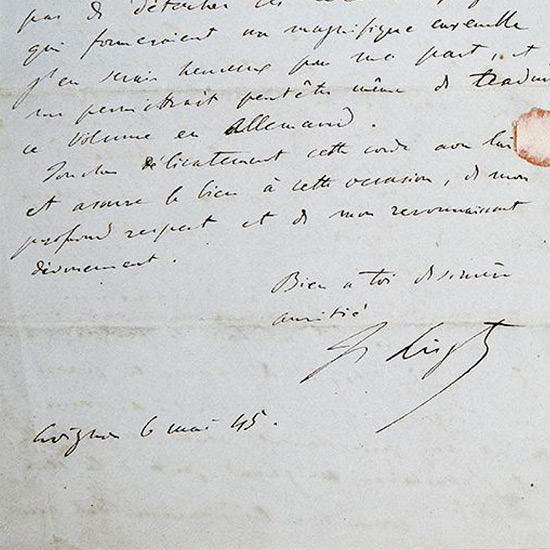 pas de détacher ces
qui formeraient un magnifique ensemble
j'en serais heureux pour ma part, et
me permettrait peutêtre même de tradui
ce volume en Allemand.
Touchez délicatement cette corde avec lui
et assure le bien à cette occasion, de mon
profond respect et de mon reconnaissant
dévouement.
Bien à toi de sincère
amitié
F. Liszt
Avignon 6 mai 45.